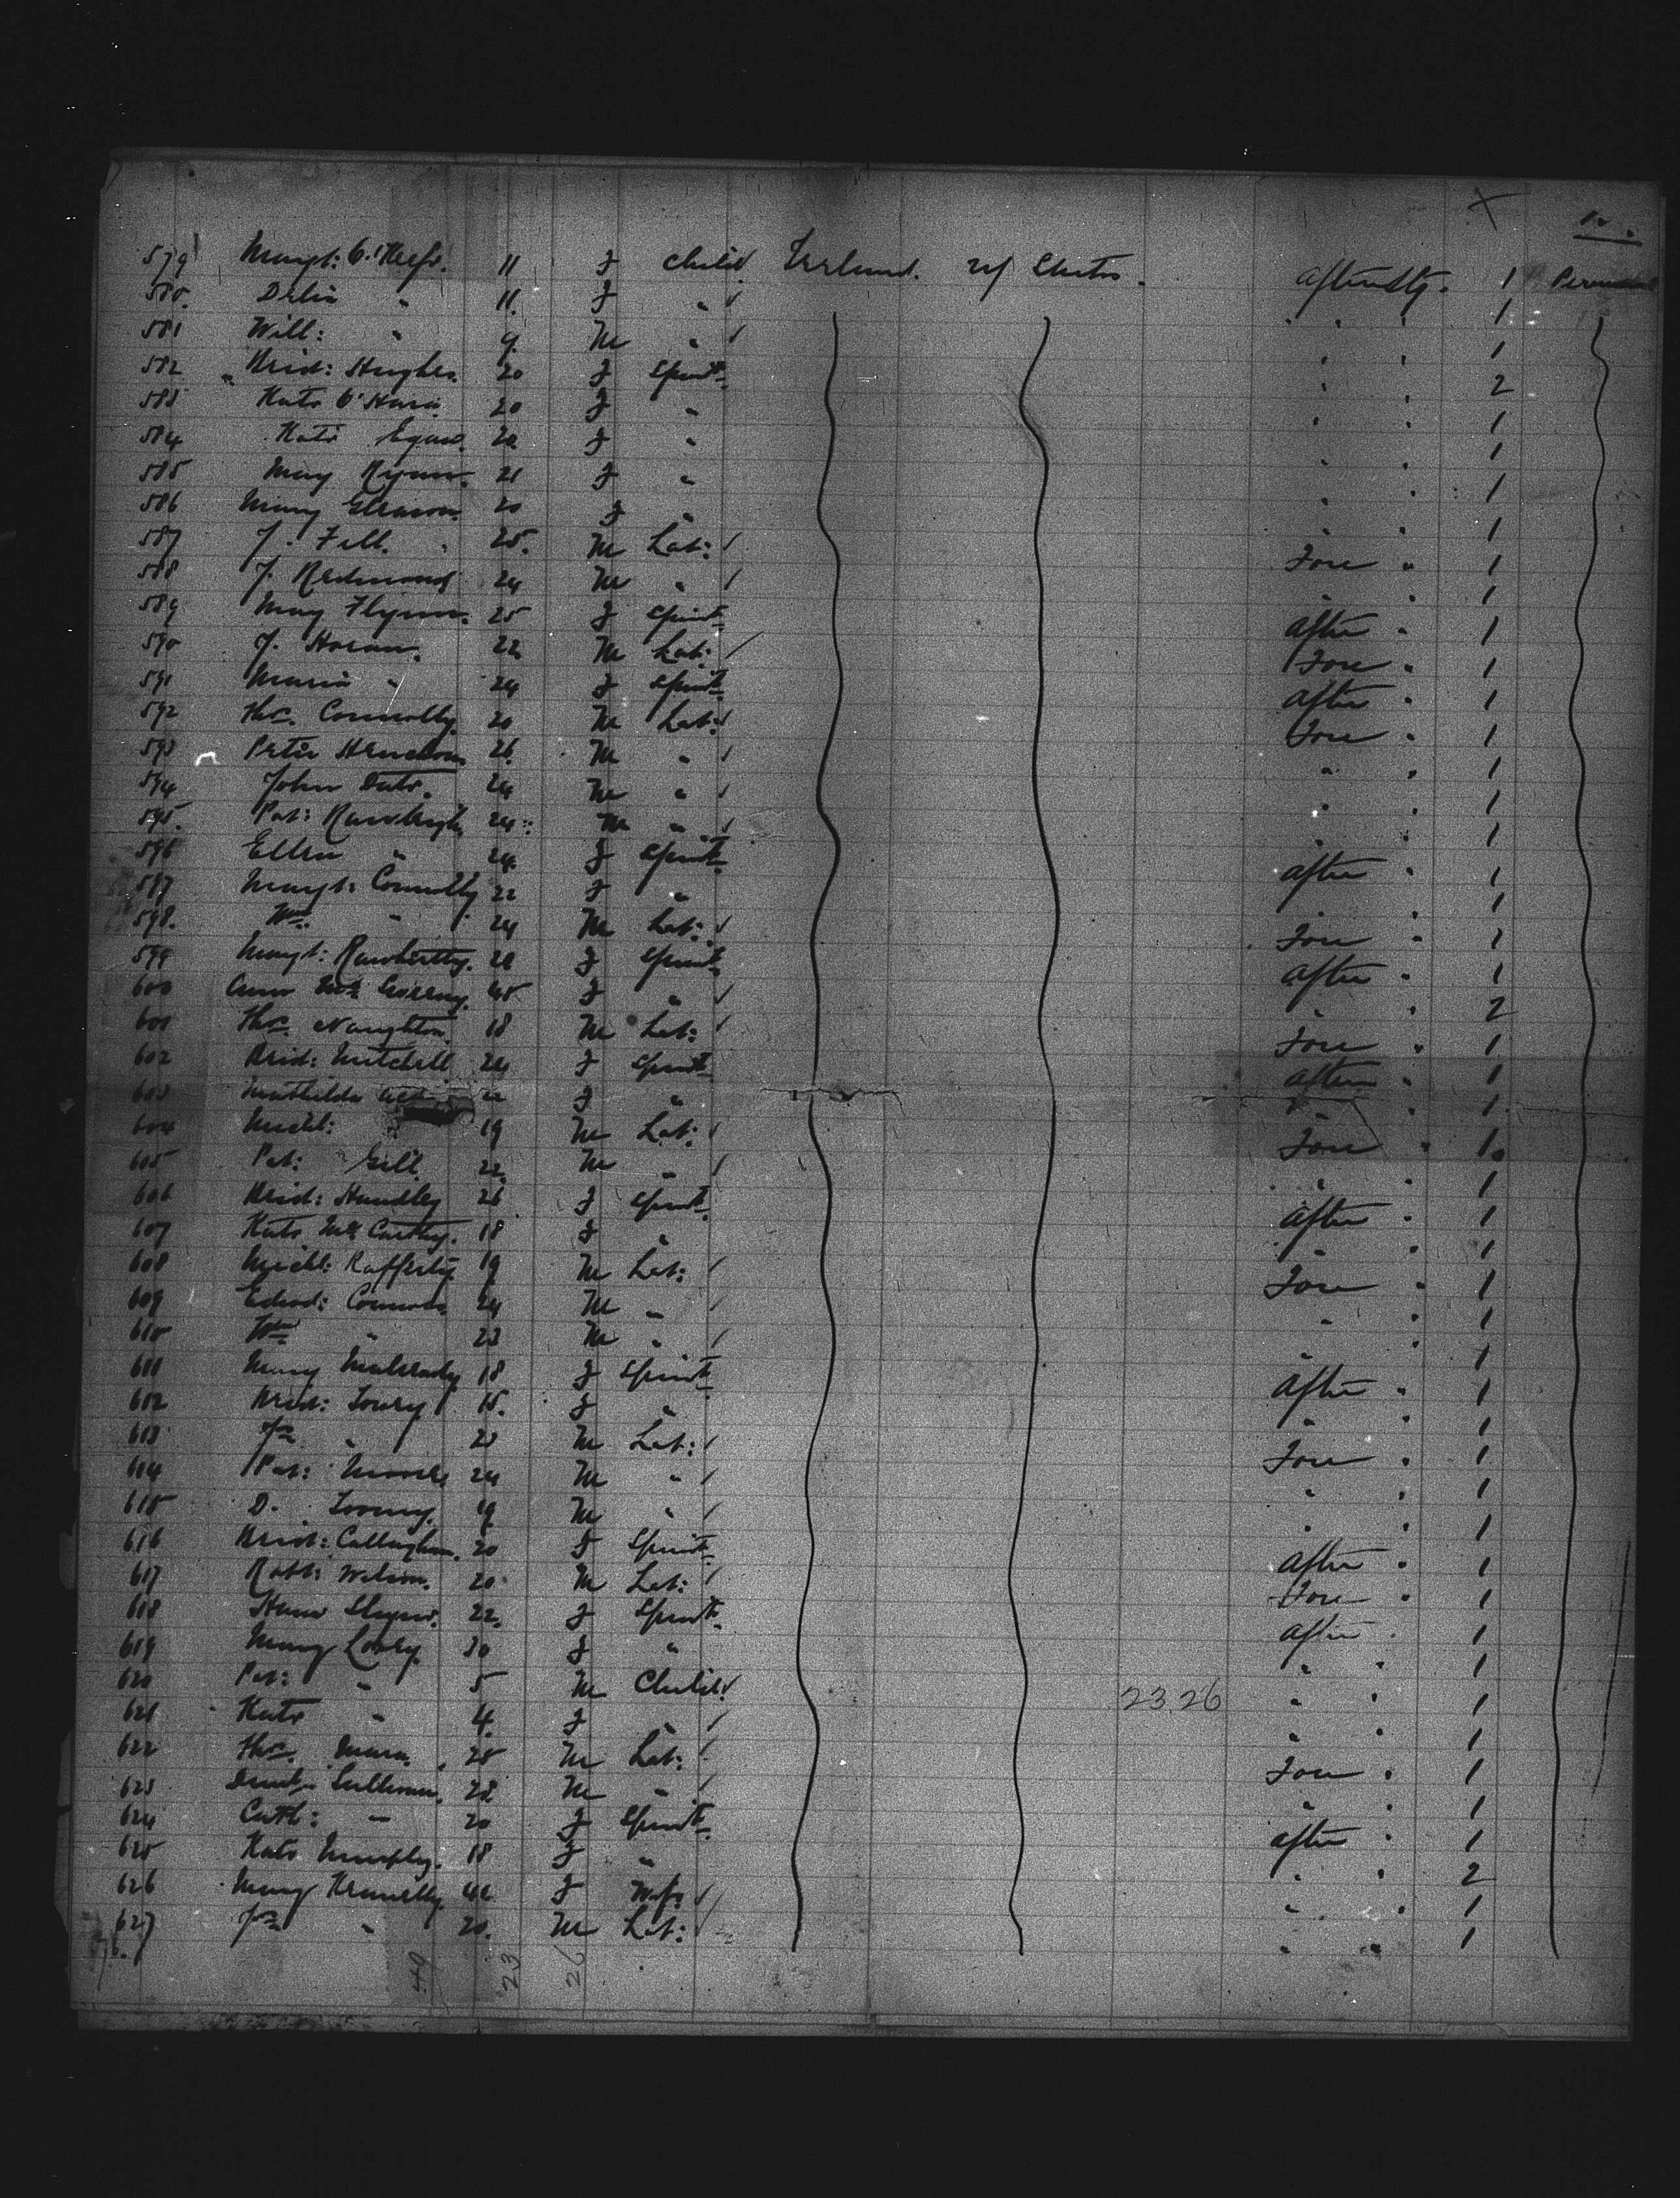 12.
579 Margt: O'Keefe. 11 f child Ireland. U/ States. afterstg. 1
580. Delia " 11. f " 1
581 Will: " 9. M " 1
582 Brid: Hughes. 20 f Spinst. " 2
583 Kate O'Hara. 20 f " 1
584 Kate Egan. 20 f " 1
585 May Ryan. 21 f " 1
586 Mary Gleason. 20 f " 1
587 J. Fell. 25. M Lab: Fore " 1
588 J. Redmond 24 M " 1
589 May Flynn. 25 f Spinst. after " 1
590 J. Horan. 22 M Lab: Fore " 1
591 Maria " 24 f Spinst. after " 1
592 Thos. Connolly. 20 M Lab: Fore " 1
593 Peter 26. M " 1
594 John 24 M " 1
595. Pat: Rawleigh. 24 M " 1
596 Ellen " 24. f Spinst. after " 1
597 Margt: Connolly 22 f " 1
598. Wm. " 24 M Lab: Fore " 1
599 Margt: 28 f Spinst. after " 1
600 45 f " 2
601 Thos. Naughton. 18 M Lab: Fore " 1
602 Brid: Mitchell 24 f Spinst. after " 1
603 Mathilda 22 f " 1
604 Michl: 19 M Lab: Fore " 1
605 Pat: Gill 22. M " 1
606 Brid: Handley 26 f Spinst. after " 1
607 Kate McCarthy. 18 f " 1
608 Michl: Rafferty 19 M Lab: Fore " 1
609 Edwd: Connors. 24 M " 1
610 Wm " 23 M " 1
611 Mary 18 f Spinst. after " 1
602 Brid: Lowry 15. f " 1
613 Jas " 23 M Lab: Fore " 1
614 Pat: Moore 24 M " 1
615 D. Looney. 19. M " 1
616 Brid: Callaghan. 20 f Spinst. after " 1
617 Robt: Wilson. 20 M Lab: Fore " 1
618 22. f Spinst. after 1
619 Mary 30 f " 1
620 Pat: " 5 M Child 23 26 " 1
621 Kate " 4. f " 1
622 Thos. Mara. 25 M Lab: Fore " 1
623 Sullivan. 28 M " 1
624 Cath: " 20 f Spinst. after " 1
625 Kate Murphy. 18 f " 2
626 Mary 42 f Wife " 1
627 Jas " 20. M Lab: " 1
49 23 26